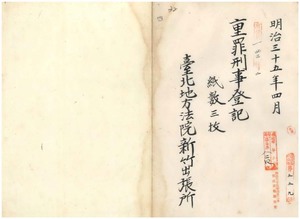 明治三十五年四月
重罪刑事登記
紙數三枚
臺北地方法院新竹出張所